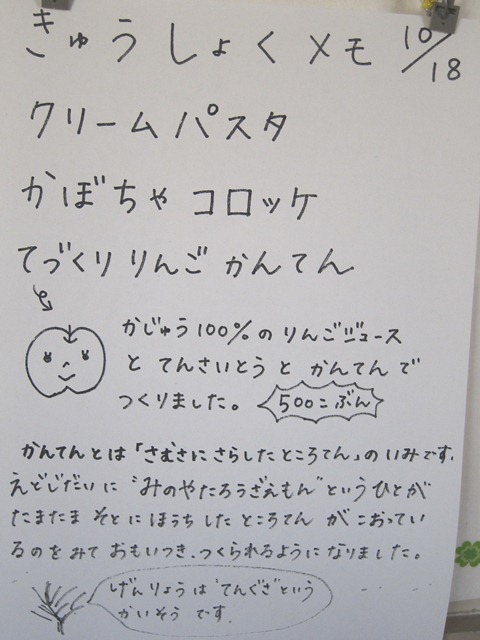 きゅうしょくメモ 10/18
クリームパスタ
かぼちゃコロッケ
てづくりりんごかんてん
かじゅう100%のりんごジュース
とてんさいとうとかんてんで
つくりました。 500こぶん
かんてんとは「さむさにさらしたところてん」のいみです。
えどじだいに"みのやたろうざえもん"というひとが
たまたまそとにほうちしたところてんがこおってい
るのをみておもいつき、つくられるようになりました。
げんりょうは"てんぐさ"という
かいそうです。